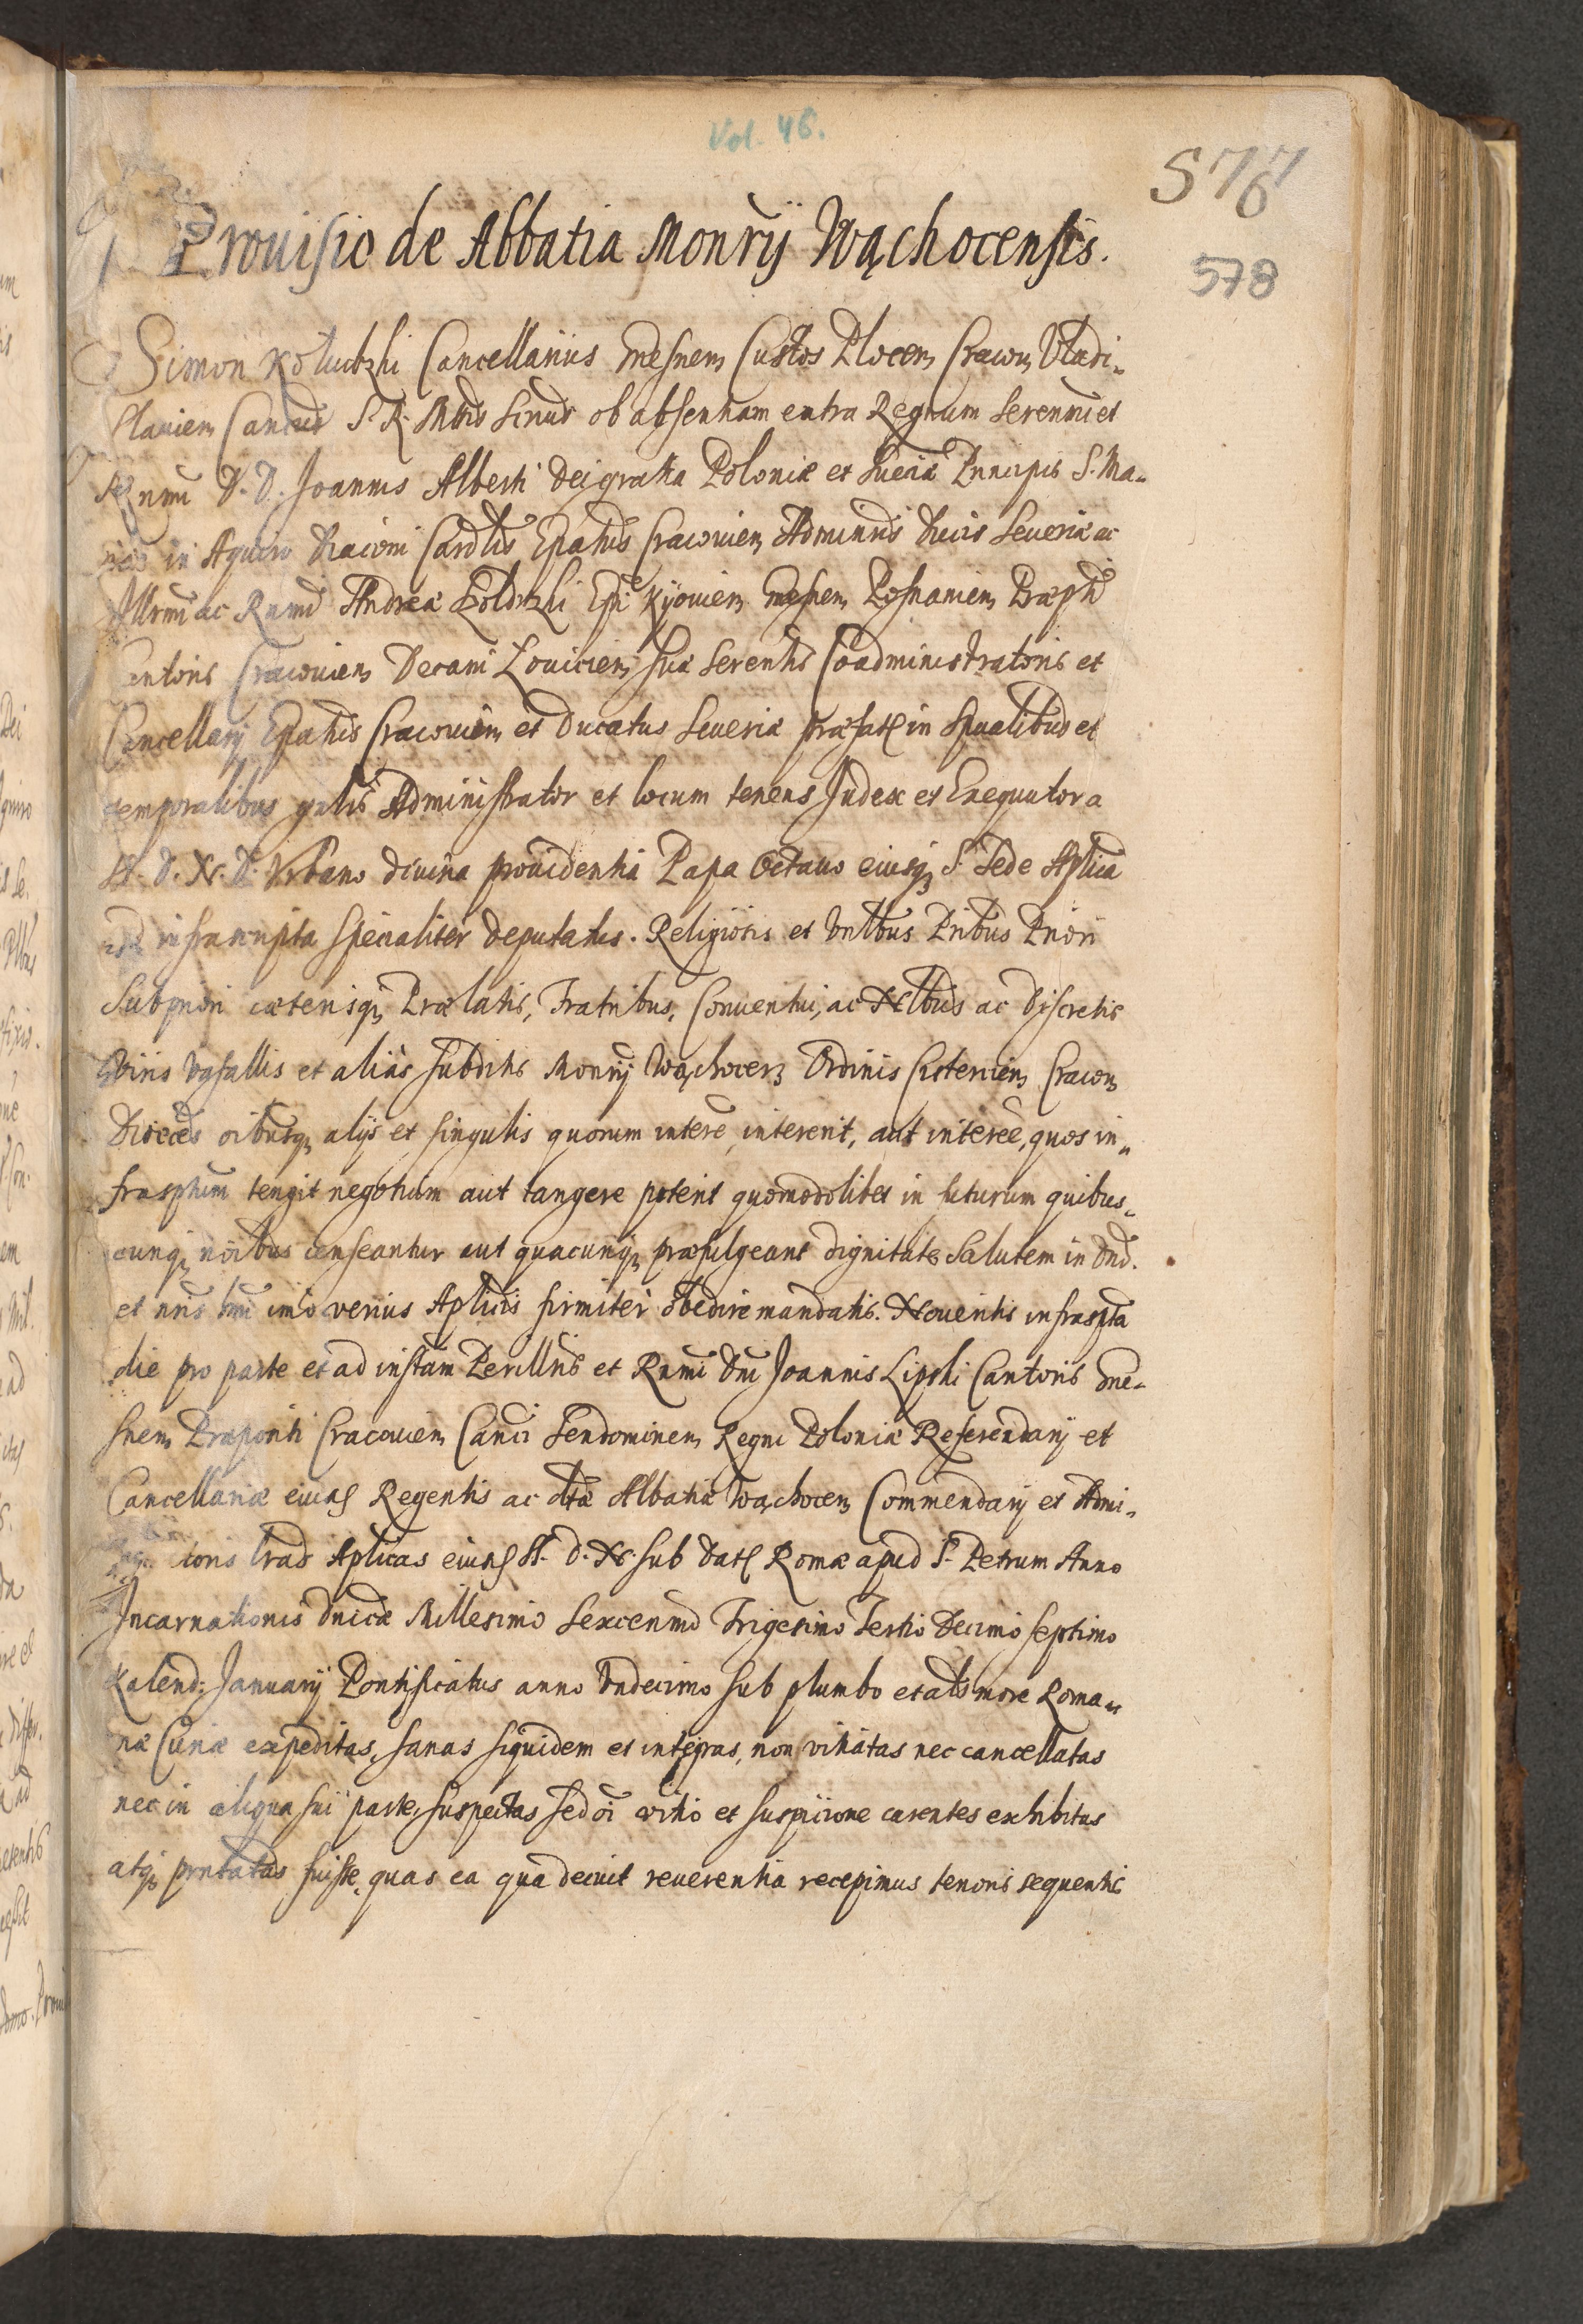 Vol. 46.
577
6
578
Prouisio de Abbatia Monrÿ Wąchocensis.
Simon Kołudzki Cancellarius Gnesnen Custos Plocen Cracou Uladi„
slauien Cancus S. R. Mttis Scriūs ob absentiam extra Regnum Serenmi et
D. D. Joannis Alberti Dei gratia Poloniæ et Sueciæ Principis S. Ma„
in Aquiro Diaconi Cardlis Epatus Cracouien Administris Ducis Seueriæ ac
Illrmi ac Rndmi Andreæ Epi Kijouien Gnesnen Posnanien Præpti
Cantoris Cracouien Decani Louicien suæ Serentis Coadministratoris et
Cancellarÿ Epatus Cracouien et Ducatus Seueriæ præfat in spualibus et
temporalibus gnlis Administrator et locum tenens Judex et Exequutor a
S. D. N. D. Vrbano diuina prouidentia Papa Octauo eiusq S. Sede Aplica
infrascripta specialiter deputatus. Religiosis et Vnlbus Pribus Priori
Subpriori cæterisq Prælatis, Fratribus, Conuentui, ac Nlbus ac Discretis
Viris Vasallis et aliàs subditis Monrÿ Wąchocen Ordinis Cistercien Cracou
Diœces oibusq alijs et singulis quorum interē, intererit, aut interēē, quos in„
frasptum tangit negotium aut tangere poterit quomodolibet in futurum quibus„
cunq noibus censeantur aut quacunq præfulgeant dignitate Salutem in Dno.
et nris imò verius Aplicis firmiter obedire mandatis. Noueritis infraspta
die pro parte et ad instam Perillris et Rndmi Dni Joannis Lipski Cantoris Gne„
snen Præpositi Cracouien Canci Sendomirien Regni Poloniæ Referendarÿ et
Cancellariæ eiusd Regentis ac dtæ Abbatiæ Wąchocen Commendarÿ et Admi„
toris lras Aplicas eiusd S. D. N. sub Dat Romæ apud S. Petrum Anno
Incarnationis Dnicæ Millesimo Sexcenmo Trigesimo Tertio Decimo septimo
Kalend: Januarÿ Pontificatus anno Vndecimo sub plumbo et als more Roma„
næ Curiæ expeditas, sanas siquidem et integras, non vitiatas nec cancellatas
nec in aliqua sui parte, suspectas sed oi vitio et suspicione carentes exhibitas
atq prntatas fuisse, quas ea qua decuit reuerentia recepimus tenoris sequentis